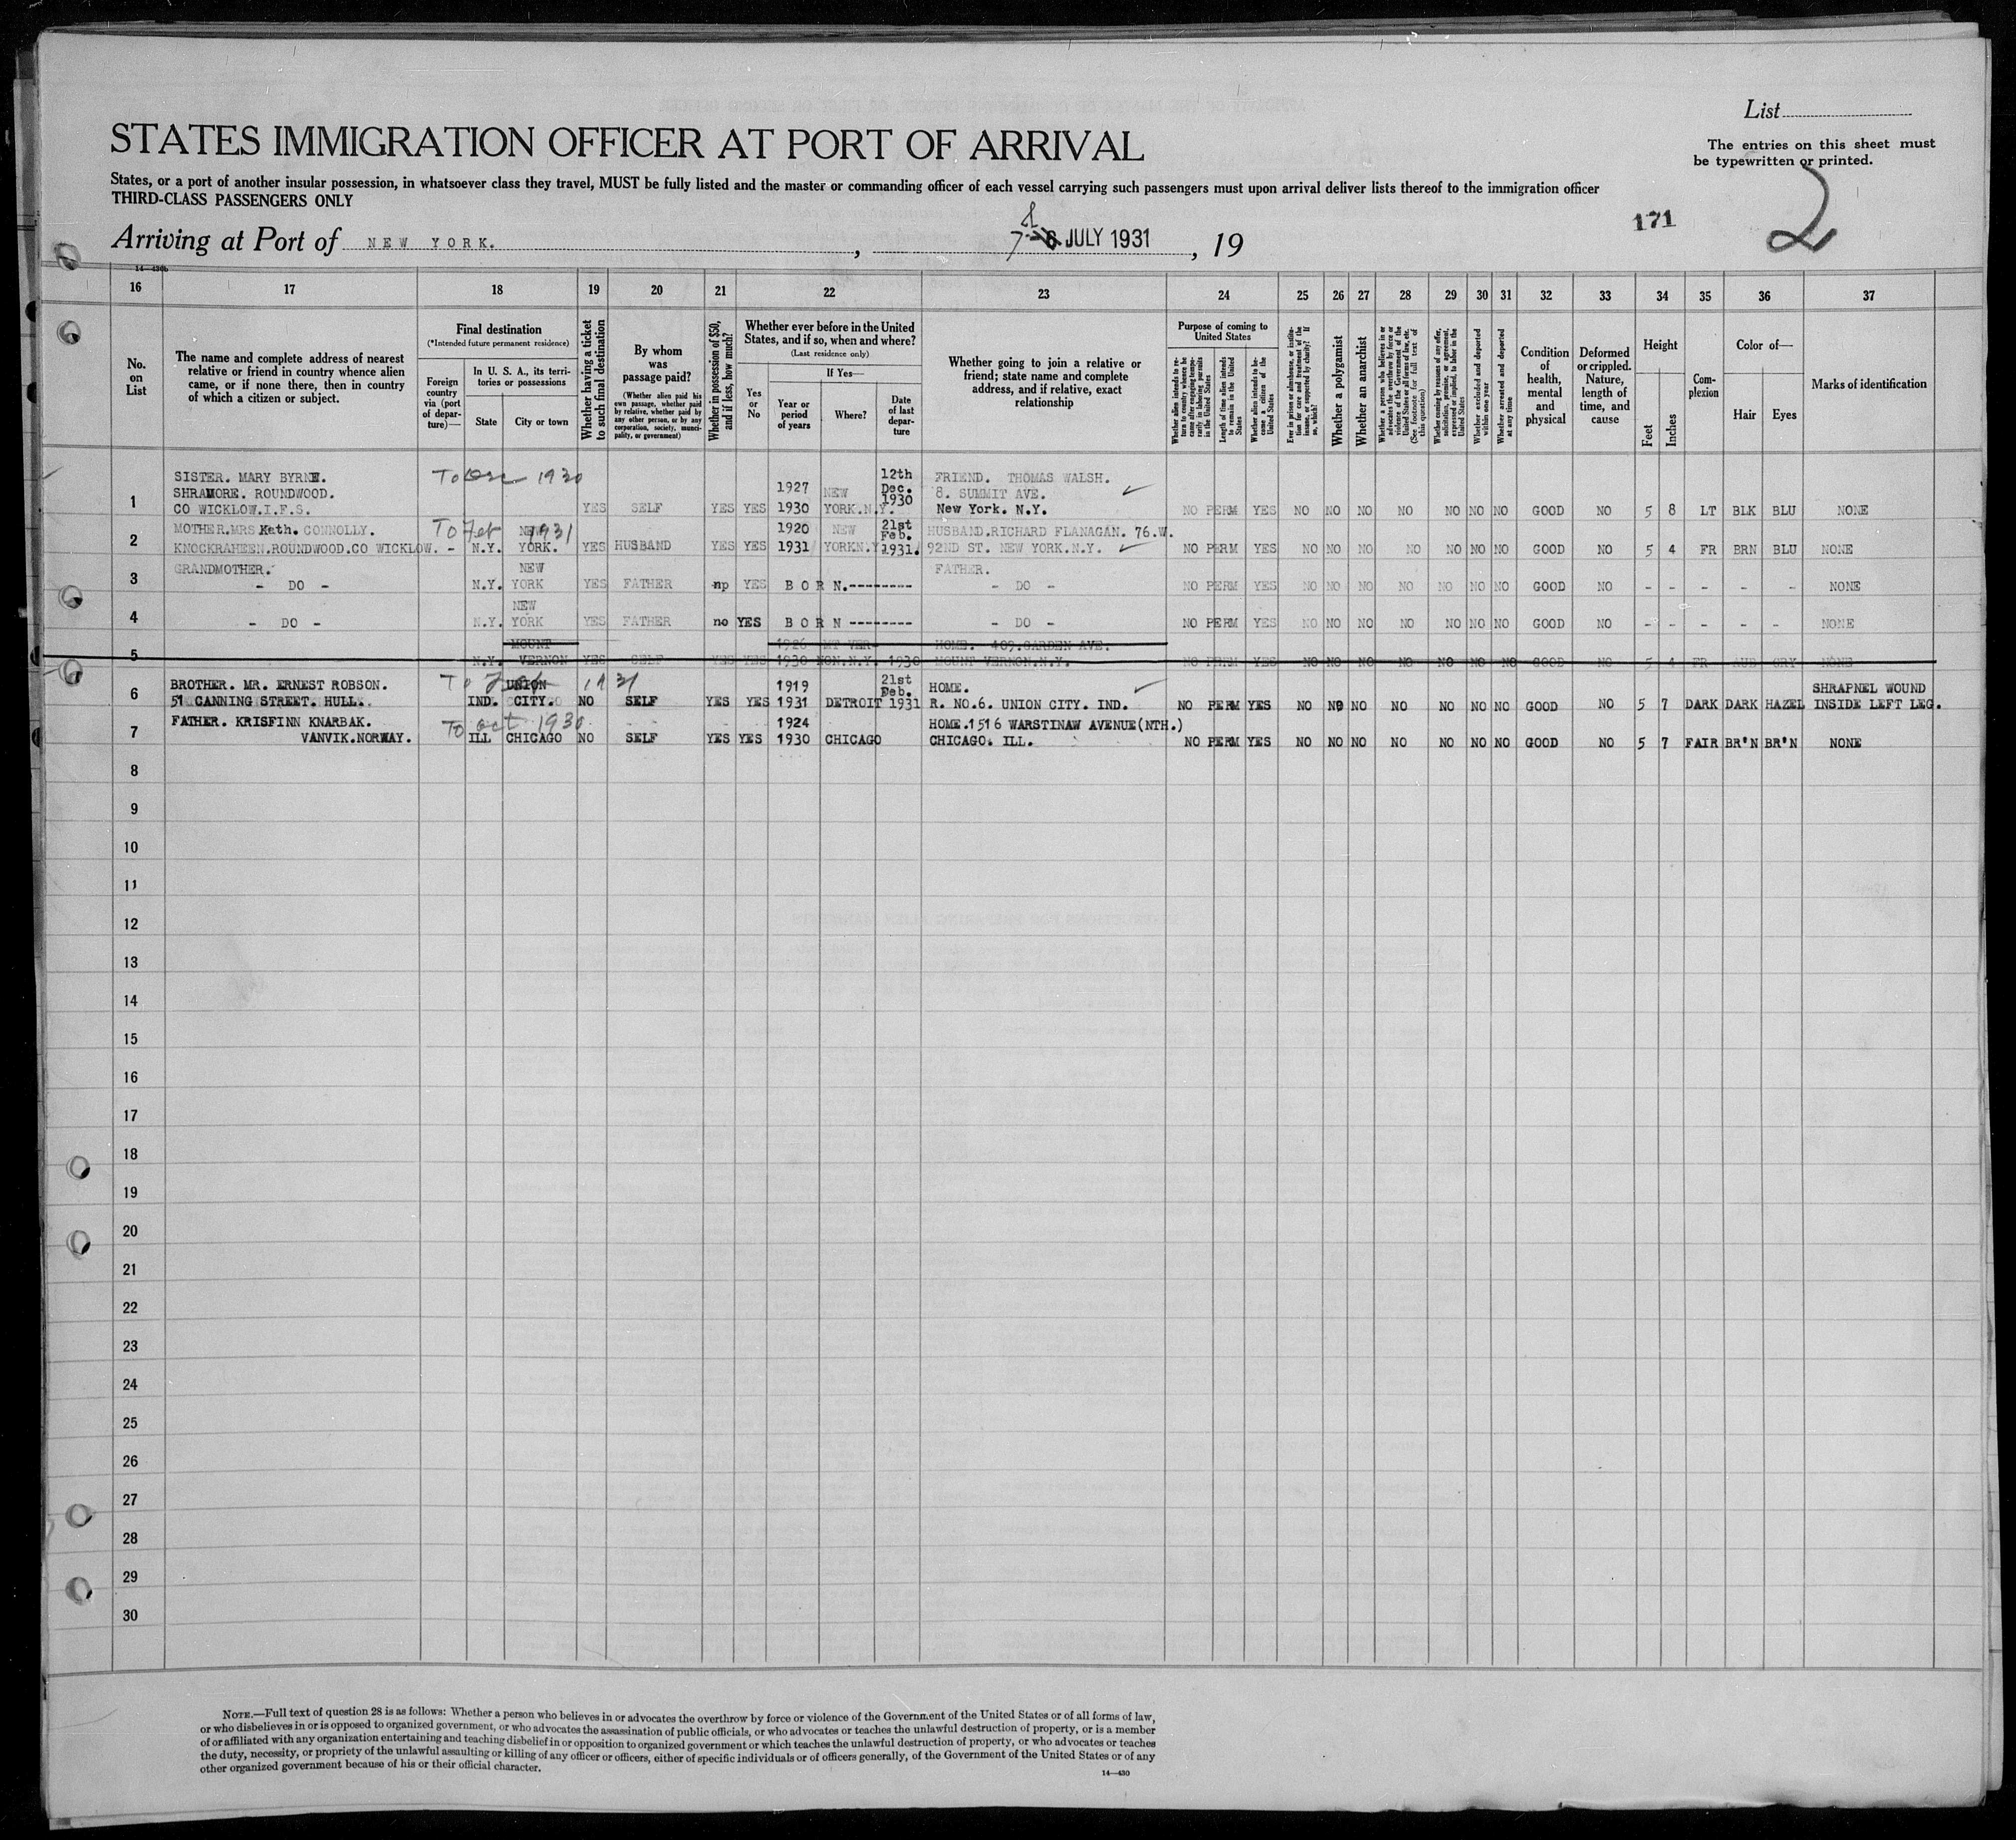 List
The entries on this sheet must
be typewritten or printed.
STATES IMMIGRATION OFFICER AT PORT OF ARRIVAL
States, or a port of another insular possession, in whatsoever class they travel, MUST be fully listed and the master or commanding officer of each vessel carrying such passengers must upon arrival deliver lists thereof to the immigration officer
THIRD-CLASS PASSENGERS ONLY
171
2
Arriving at Port of NEW YORK. , 7 JULY 1931 , 19
14-430b
16 17 18 19 20 21 22 23 24 25 26 27 28 29 30 31 32 33 34 35 36 37
No.
on
List
The name and complete address of nearest
relative or friend in country whence alien
came, or if none there, then in country
of which a citizen or subject.
Final destination
(*Intended future permanent residence)
Foreign
country
via (port
of depar-
ture)—
In U. S. A., its terri-
tories or possessions
State
City or town
Whether having a ticket
to such final destination
By whom
was
passage paid?
(Whether alien paid his
own passage, whether paid
by relative, whether paid by
any other person, or by any
corporation, society, munici-
pality, or government)
Whether in possession of $50,
and if less, how much?
Whether ever before in the United
States, and if so, when and where?
(Last residence only)
Yes
or
No
If Yes—
Year or
period
of years
Where?
Date
of last
depar-
ture
Whether going to join a relative or
friend; state name and complete
address, and if relative, exact
relationship
Purpose of coming to
United States
Whether alien intends to re-
turn to country whence he
came after engaging tempo-
rarily in laboring pursuits
in the United States
Length of time alien intends
to remain in the United
States
Whether alien intends to be-
come a citizen of the
United States
Ever in prison or almshouse, or institu-
tion for care and treatment of the
insane, or supported by charity? If
so, which?
Whether a polygamist
Whether an anarchist
Whether a person who believes in or
advocates the overthrow by force or
violence of the Government of the
United States or all forms of law, etc.
(See footnote for full text of
this question)
Whether coming by reasons of any offer,
solicitation, promise, or agreement,
expressed or implied, to labor in the
United States
Whether excluded and deported
within one year
Whether arrested and deported
at any time
Condition
of
health,
mental
and
physical
Deformed
or crippled.
Nature,
length of
time, and
cause
Height
Feet
Inches
Com-
plexion
Color of—
Hair
Eyes
Marks of identification
SISTER. MARY BYRNE. To Dec 1930 12th FRIEND. THOMAS WALSH.
SHRAMORE. ROUNDWOOD. 1927 NEW Dec. 8. SUMMIT AVE.
1 CO WICKLOW.I.F.S. YES SELF YES YES 1930 YORK.N.Y. 1930 New York. N.Y. NO PERM YES NO NO NO NO NO NO NO GOOD NO 5 8 LT BLK BLU NONE
MOTHER.MRS Kath. CONNOLLY. To Feb 1931 NEW 1920 NEW 21st Feb. HUSBAND.RICHARD FLANAGAN. 76.W.
2 KNOCKRAHEEN.ROUNDWOOD.CO WICKLOW. - N.Y. YORK. YES HUSBAND YES YES 1931 YORKN.Y. 1931. 92ND ST. NEW YORK.N.Y. NO PERM YES NO NO NO NO NO NO NO GOOD NO 5 4 FR BRN BLU NONE
GRANDMOTHER. NEW FATHER.
3 - DO - N.Y. YORK YES FATHER no YES BORN.-------- - DO - NO PERM YES NO NO NO NO NO NO NO GOOD NO - - - - - NONE
NEW
4 - DO - N.Y. YORK YES FATHER no YES BORN -------- - DO - NO PERM YES NO NO NO NO NO NO NO GOOD NO - - - - - NONE
MOUNT 1926 MT VER- HOME. 409.GARDEN AVE.
5 N.Y. VERNON YES SELF YES YES 1930 NON.N.Y. 1930 MOUNT VERNON.N.Y. NO PERM YES NO NO NO NO NO NO NO GOOD NO 5 4 FR AUB GRY NONE
BROTHER. MR. ERNEST ROBSON. To Feb 1931 UNION 1919 21st Feb. HOME. SHRAPNEL WOUND
6 51 CANNING STREET. HULL. IND. CITY. NO SELF YES YES 1931 DETROIT 1931 R. NO.6. UNION CITY. IND. NO PERM YES NO NO NO NO NO NO NO GOOD NO 5 7 DARK DARK HAZEL INSIDE LEFT LEG.
FATHER. KRISFINN KNARBAK. To Oct 1930 1924 HOME.1516 WARSTINAW AVENUE(NTH.)
7 VANVIK.NORWAY. ILL CHICAGO NO SELF YES YES 1930 CHICAGO CHICAGO. ILL. NO PERM YES NO NO NO NO NO NO NO GOOD NO 5 7 FAIR BR'N BR'N NONE
8
9
10
11
12
13
14
15
16
17
18
19
20
21
22
23
24
25
26
27
28
29
30
NOTE.—Full text of question 28 is as follows: Whether a person who believes in or advocates the overthrow by force or violence of the Government of the United States or of all forms of law,
or who disbelieves in or is opposed to organized government, or who advocates the assassination of public officials, or who advocates or teaches the unlawful destruction of property, or is a member
of or affiliated with any organization entertaining and teaching disbelief in or opposition to organized government or which teaches the unlawful destruction of property, or who advocates or teaches
the duty, necessity, or propriety of the unlawful assaulting or killing of any officer or officers, either of specific individuals or of officers generally, of the Government of the United States or of any
other organized government because of his or their official character.
14-430